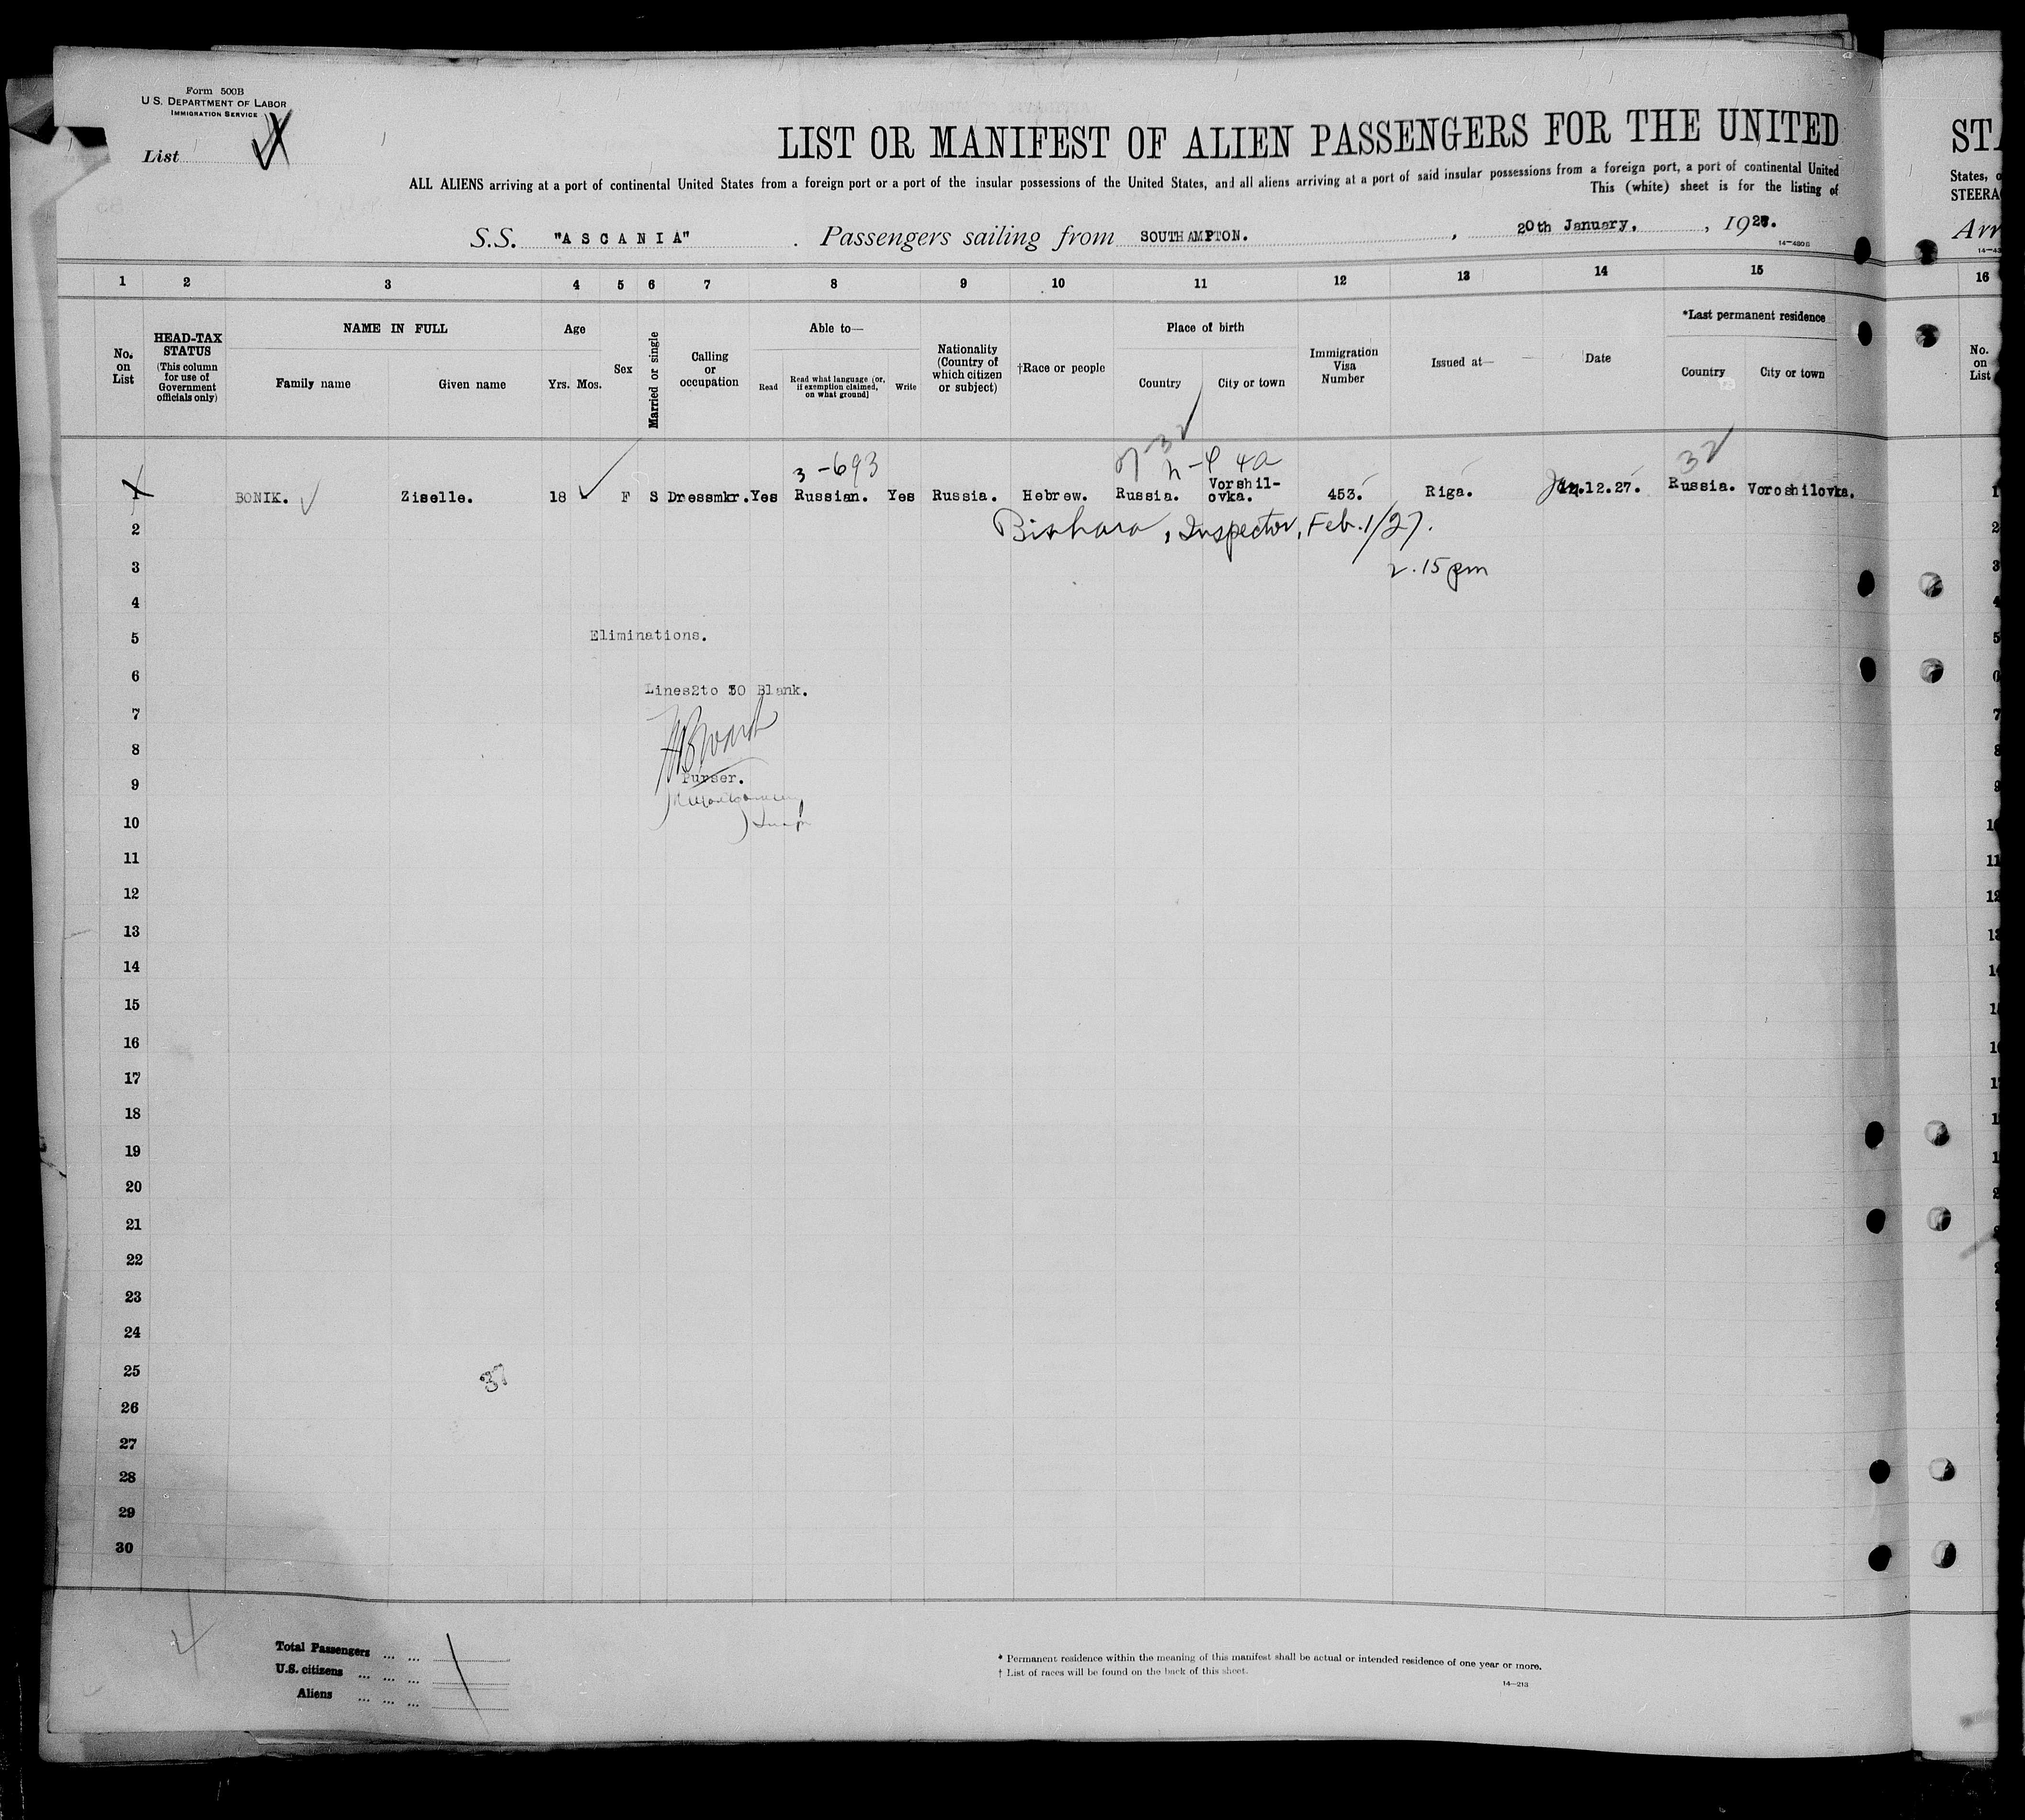 Form 500B
U. S. DEPARTMENT OF LABOR
IMMIGRATION SERVICE
List
LIST OR MANIFEST OF ALIEN PASSENGERS FOR THE UNITED
ALL ALIENS arriving at a port of continental United States from a foreign port or a port of the insular possessions of the United States, and all aliens arriving at a port of said insular possessions from a foreign port, a port of continental United
This (white) sheet is for the listing of
S.S. "ASCANIA" . Passengers sailing from SOUTHAMPTON. , 20th January, , 1927.
14-480B
1 2 3 4 5 6 7 8 9 10 11 12 13 14 15 16
No. on List
HEAD-TAX STATUS (This column for use of Government officials only)
NAME IN FULL
Family name Given name
Age
Yrs. Mos.
Sex
Married or single
Calling or occupation
Able to—
Read Read what language [or, if exemption claimed, on what ground] Write
Nationality (Country of which citizen or subject)
†Race or people
Place of birth
Country City or town
Immigration Visa Number
Issued at—
Date
*Last permanent residence
Country City or town
No. on List
3-693 4a 32
1 BONIK. Ziselle. 18 F S Dressmkr. Yes Russian. Yes Russia. Hebrew. Russia. Vorshil-ovka. 453. Riga. Jan.12.27. Russia. Voroshilovka. 1
2 Inspector, Feb. 1/27.
3 2.15 pm
4
5 Eliminations.
6 Lines2to 30 Blank.
7
8
9 Purser.
10
11
12
13
14
15
16
17
18
19
20
21
22
23
24
25 37
26
27
28
29
30
4
Total Passengers ... ...
U.S. citizens ... ... ...
Aliens ... ... ...
* Permanent residence within the meaning of this manifest shall be actual or intended residence of one year or more.
† List of races will be found on the back of this sheet.
14-213